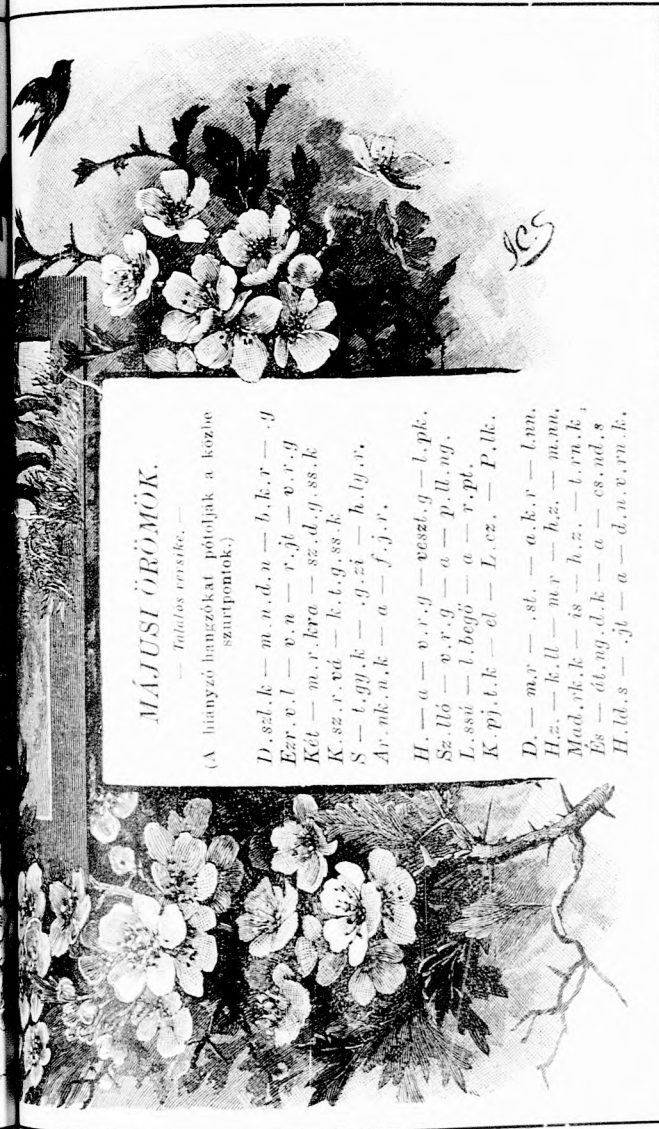 MÁJUSI ÖRÖMÖK.
— Találós versike. —
(A hiányzó hangzókat pótolják a közbe
szurt pontok.)
D.szl.k — m.n.d.n — b.k.r — .g
Ezr.v.l — v.n — r.jt — v.r.g
Két — m.r.kra — sz.d.g.ss.k
K.sz.r.vá — k.t.g.ss.k
S — t.gy.k — .g.zi — h.ly.r.
Ar.nk.n.k — a — f.j.r.
H. — a — v.r.g — veszt.g — l.pk.
Sz.lló — v.r.g — a — p.ll.ng.
L.ssú — l.begő — a — r.pt.
K.pj.t.k — el — L.cz. — P.lk.
D. — m.r — .st. — a.k.r — l.nn.
H.z. — k.ll — m.r — h.z. — m.nn.
Mad.rk.k — is — h.z. — t.rn.k ;
És — át.ng.d.k — a — cs.nd.s
H.ld.s — .jt — a — d.n.v.rn.k.
JCS